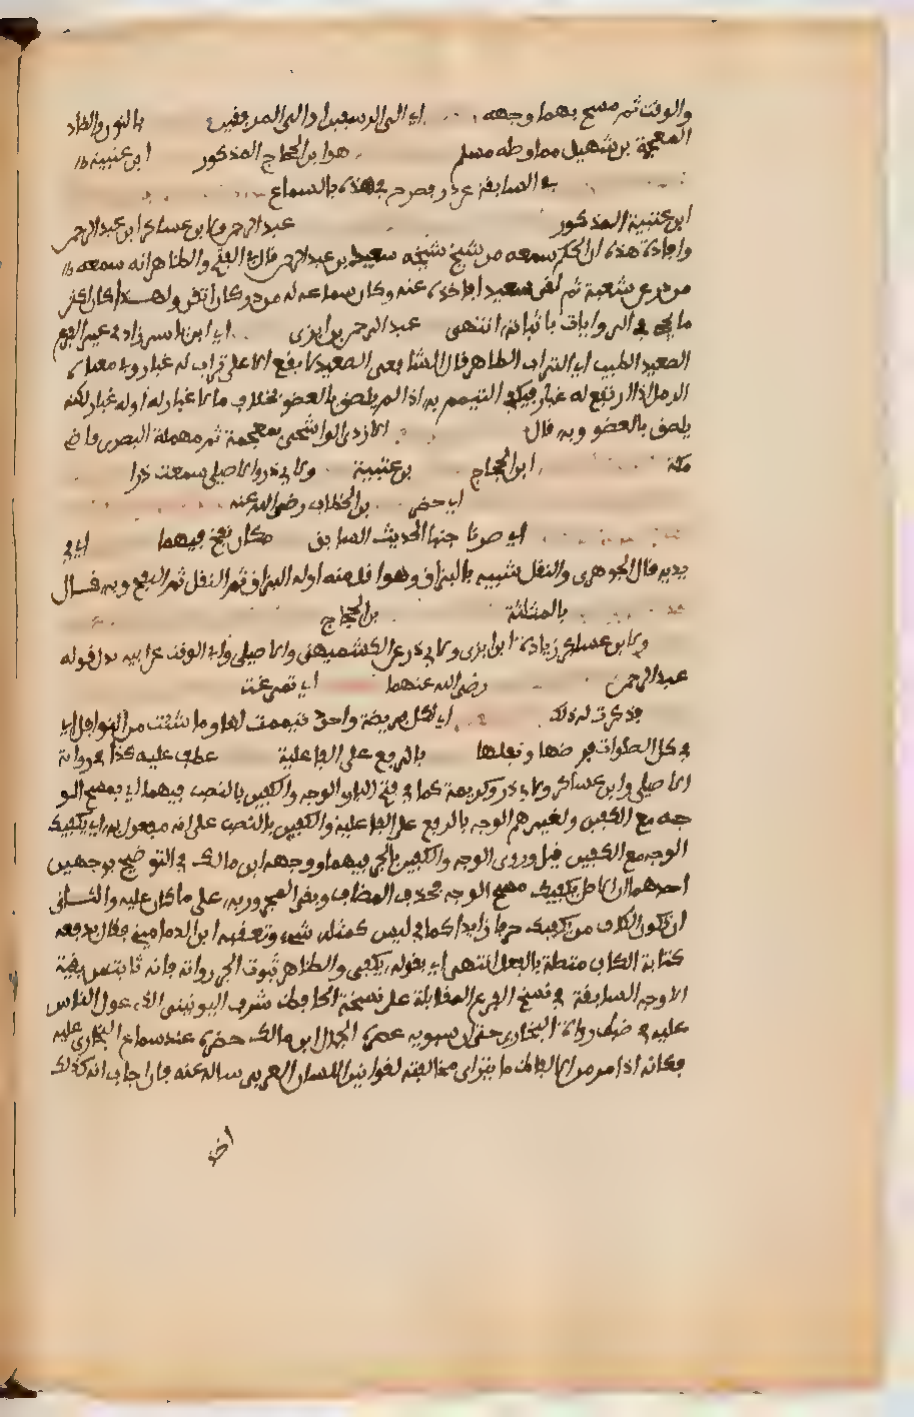 والوقت ثم مسح بهما وجهه اي الى الرسغين او الى المرفقين بالنون والضاد
المعجمة بن شميل مما وصله مسلم هو ابن الحجاج المذكور ابن عتيبة
السابقة عن ذر فصرح في هذه بالسماع
ابن عتيبة المذكور عبد الرحمن ولابن عساكر ابن عبد الرحمن
وافادت هذه ان الحكم سمعه من شيخ شيخه سعيد بن عبد الرحمن قال في الفتح والظاهر انه سمعه
من ذر عن شعبة ثم لقي سعيدا فاخذه عنه وكان سماعه له من ذر كان اتقن ولهذا كان اكثر
ما يجيء في الروايات باثباته انتهى عبد الرحمن بن ابزى اي ابن ياسر زاد في غير الفرع
الصعيد الطيب اي التراب الطاهر قال الشافعي الصعيد لا يقع الا على تراب له غبار وفي معناه
الرمل اذا ارتفع له غبار فيكفي التيمم به اذا لم يلصق بالعضو بخلاف ما لا غبار له او له غبار لكنه
يلصق بالعضو وبه قال الازدي الواشحي بمعجمة ثم مهملة البصري قاضي
مكة ابن الحجاج بن عتيبة ولابي ذر والاصيلي سمعت ذرا
اي حضر بن الخطاب رضي الله عنه
اي صرنا جنبا الحديث السابق مكان نفخ فيهما اي في
يديه قال الجوهري والتفل شبيه بالبزاق وهو اقل منه اوله البزاق ثم التفل ثم النفخ وبه قال
بالمثلثة بن الحجاج
ولابن عساكر زيادة ابن ابزى ولابي ذر عن الكشميهني والاصيلي وابي الوقت عن ابيه بدل قوله
عبد الرحمن رضي الله عنهما اي تمرغت
فذكرت له ذلك اي لكل فريضة واحدة تيممت لها وما شئت من النوافل اي
في كل الصلوات فرضها ونفلها بالرفع على الفاعلية عطف عليه كذا في رواية
الاصيلي وابن عساكر ولابي ذر وكريمة كما في فتح الباري الوجه والكفين بالنصب فيهما اي يمسح الو
جه مع الكفين ولغيرهم الوجه بالرفع على الفاعلية والكفين بالنصب على انه مفعول به اي يكفيك
الوجه مع الكفين قيل وروي الوجه والكفين بالجر فيهما ووجهه ابن مالك في التوضيح بوجهين
احدهما ان الاصل يكفيك مسح الوجه فحذف المضاف وبقي المجرور به على ما كان عليه والثاني
ان تكون الكاف من يكفيك حرفا زايدا كما في ليس كمثله شيء وتعقبه ابن الدماميني فقال يدفعه
كتابة الكاف متصلة بالفعل انتهى اي بقوله يكفي والظاهر ثبوت الجر رواية فانه ثابت من بقية
الاوجه السابقة في نسخ الفرع المقابلة على نسخة الحافظ شرف اليونيني الذي عول الناس
عليه في ضبط رواية البخاري حتى ان سيبويه عصره الجمال ابن مالك حضره عند سماع البخاري عليه
فكانه اذا مر من الالفاظ ما يتراى مخالفته لقوانين اللسان العربي ساله عنه فان اجاب انه كذلك